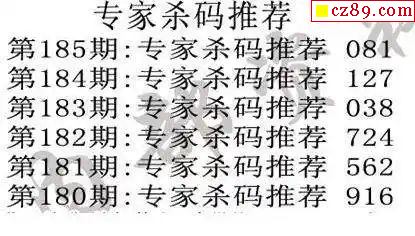 专家杀码推荐
cz89.com
第185期:专家杀码推荐 081
第184期:专家杀码推荐 127
第183期:专家杀码推荐 038
第182期:专家杀码推荐 724
第181期:专家杀码推荐 562
第180期:专家杀码推荐 916